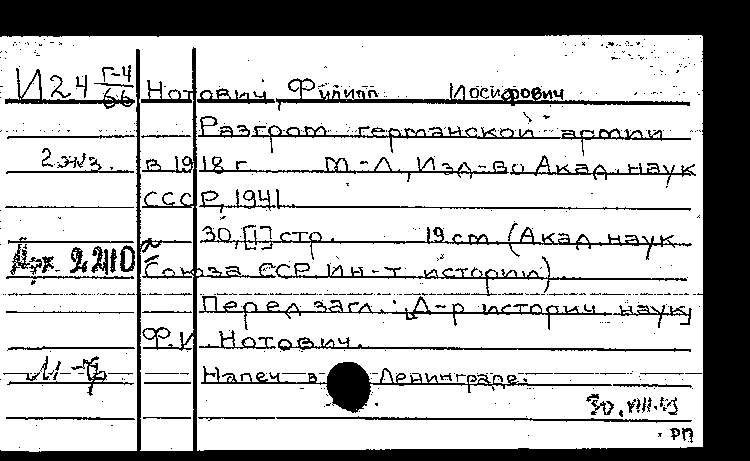 И24 Г-4/66 Нотович, Филипп Иосифович
Разгром германской армии
2 экз. в 1918 г М.-Л., Изд-во Акад. наук
СССР, 1941.
30, [1] стр. 19 см. (Акад. наук
Арх. 2210 Союза ССР. Ин-т истории)
Перед загл.: "Д-р историч. наук
Ф.И. Нотович.
Напеч. в Ленинграде.
30.VIII.
РП